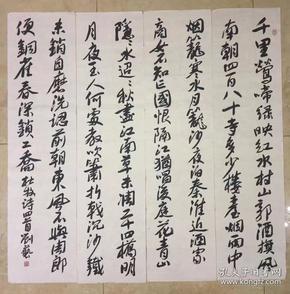 千里莺啼绿映红水村山郭酒旗风
南朝四百八十寺多少楼台烟雨中
烟笼寒水月笼沙夜泊秦淮近酒家
商女不知亡国恨隔江犹唱后庭花青山
隐隐水迢迢秋尽江南草未凋二十四桥明
月夜玉人何处教吹箫折戟沉沙铁
未销自磨洗认前朝东风不与周郎
便铜雀春深锁二乔杜牧诗四首刘艺